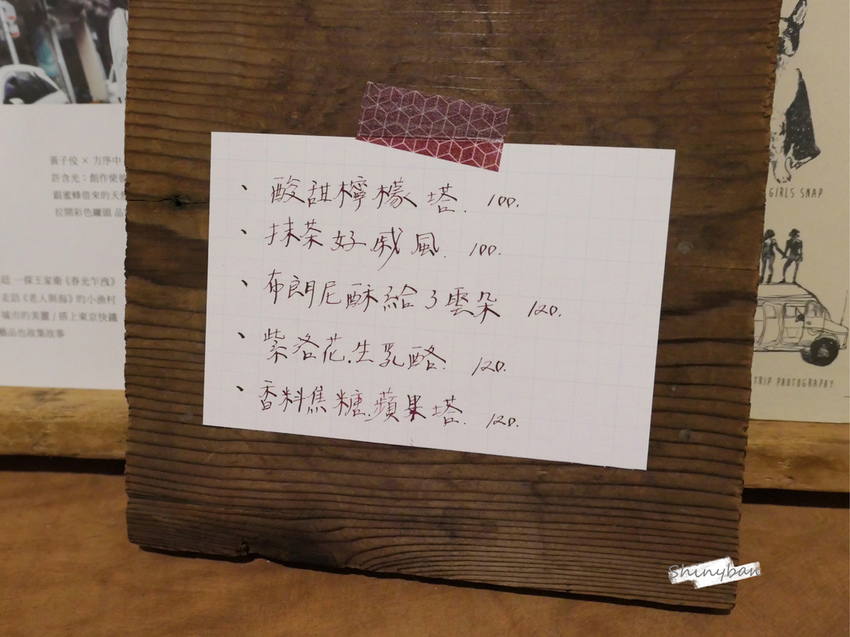 、酸甜檸檬塔. 100.
、抹茶好戚風. 100.
、布朗尼酥給了雲朵 120.
、紫洛花.生乳酪. 120.
、香料焦糖.蘋果塔. 120.
黃子佼 × 方序中
許含光：創作使
跟蜜蜂借來的天
拉開彩色罐頭 品
一探王家衛《春光乍洩》
走路《老人與海》的小漁村
城市的美麗 / 搭上東京快鐵
藝品也敢集故事
GIRLS SNAP
TRIP PHOTOGRAPHY
Shinyban